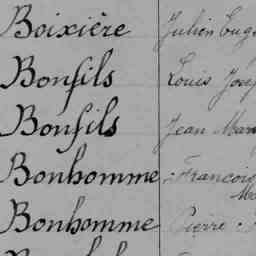 Boixière Julien Eug
Bonfils Louis Jose
Bonfils Jean Mar
Bonhomme François
Ma
Bonhomme Pierre